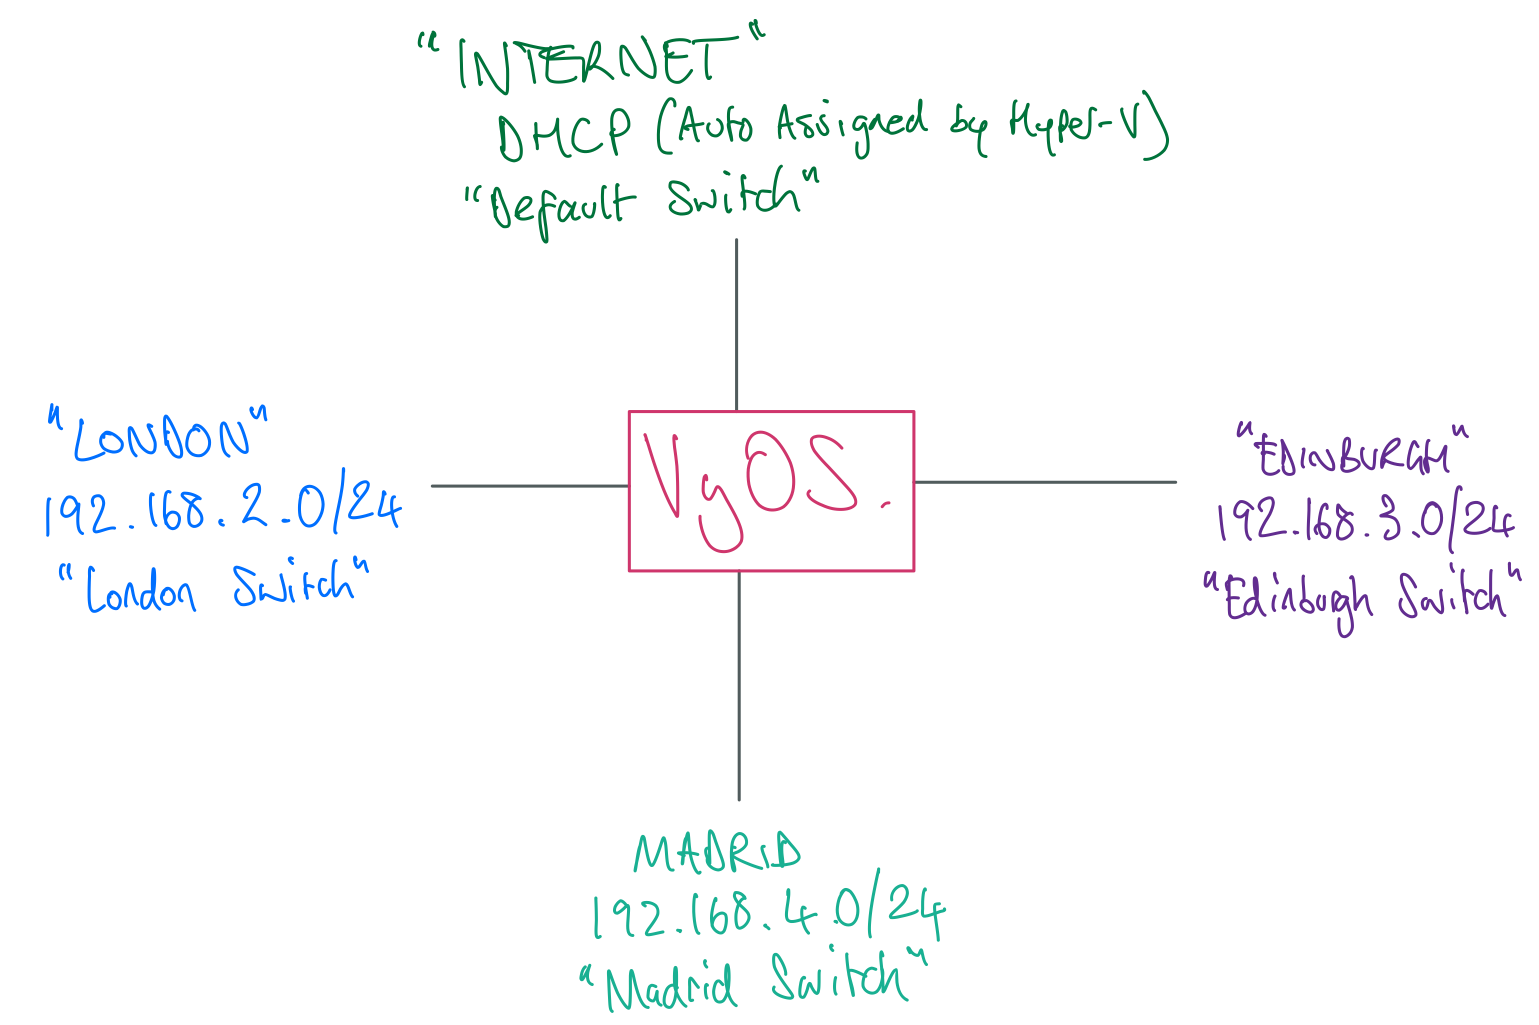 "INTERNET"
DHCP (Auto Assigned by Hyper-V)
"Default Switch"
"LONDON"
192.168.2.0/24
"London Switch"
VyOS.
"EDINBURGH"
192.168.3.0/24
"Edinburgh Switch"
MADRID
192.168.4.0/24
"Madrid Switch"